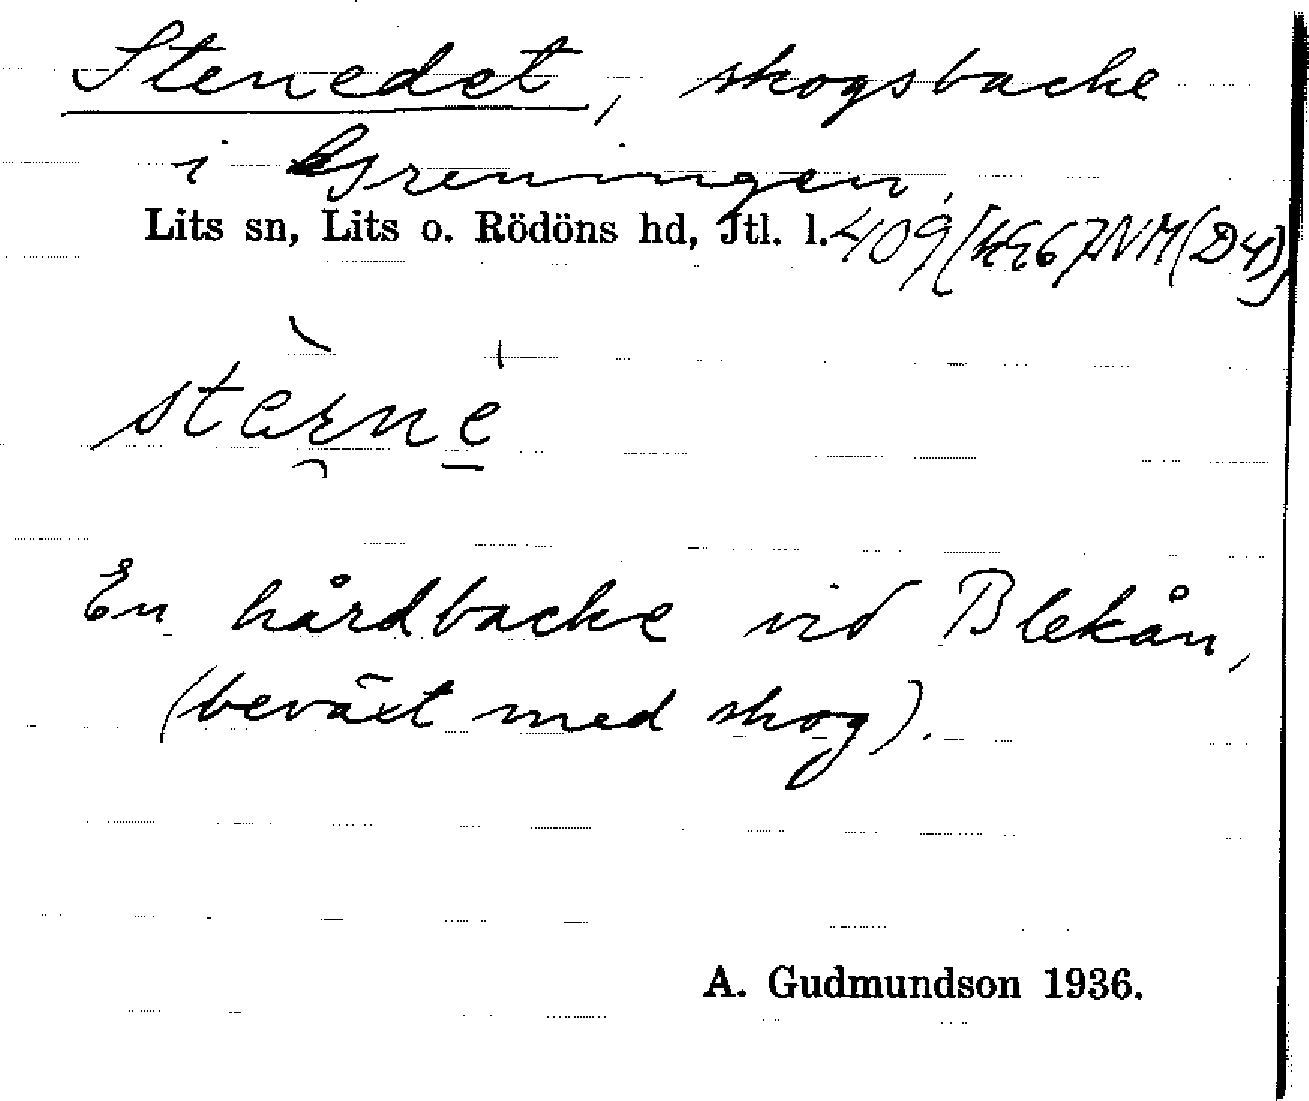 Stenedet, skogsbacke
i Greningen,
Lits sn, Lits o. Rödöns hd, Jtl. l. 409
En hårdbacke vid Blekån,
(beväxt med skog).
A. Gudmundson 1936.